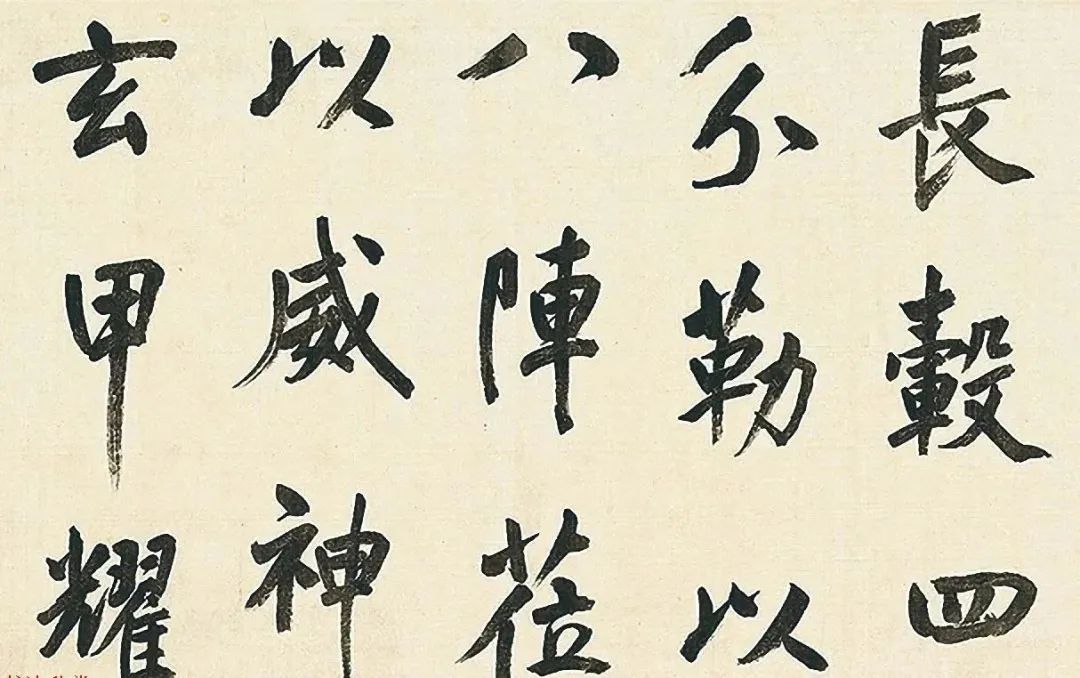 長轂四
分勒以
八陣莅
以威神
玄甲耀